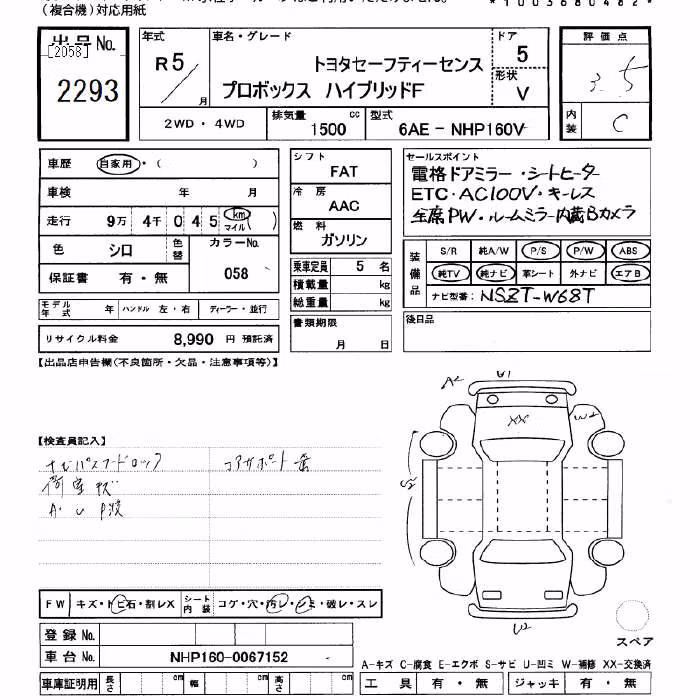 (複合機)対応用紙
*1003680482*
出品No.
[2058]
2293
年式
R5/
月
車名・グレード
トヨタセーフティーセンス
プロボックス ハイブリッドF
ドア
5
形状
V
評価点
3.5
内装
C
2WD・4WD
排気量
1500
cc
型式
6AE-NHP160V
車歴
自家用・( )
車検
年
月
走行
9万 4千 0 4 5
km
マイル
( )
色
シロ
色替
カラーNo.
058
保証書
有・無
モデル年式
年
ハンドル 左・右
ディーラー・並行
リサイクル料金
8,990 円 預託済
シフト
FAT
冷房
AAC
燃料
ガソリン
乗車定員
5 名
積載量
kg
総重量
kg
書類期限
月 日
セールスポイント
電格ドアミラー・シートヒータ
ETC・AC100V・キーレス
全席PW・ルームミラー内蔵Bカメラ
装備品
S/R 純A/W P/S P/W ABS
純TV 純ナビ 革シート 外ナビ エアB
ナビ型番: NSZT-W68T
後日品
【出品店申告欄(不良箇所・欠品・注意事項等)】
【検査員記入】
ナビパスワードロック
コアサポート歪
荷室キズ
A・U P波
A2
U1
XX
W2
S2
U2
スペア
FW
キズ・トビ石・割レX
シート内装
コゲ・穴・汚レ・シミ・破レ・スレ
登録No.
車台No.
NHP160-0067152
車庫証明用
長さ
cm
幅
cm
高さ
cm
A-キズ C-腐食 E-エクボ S-サビ U-凹ミ W-補修 XX-交換済
工具
有・無
ジャッキ
有・無